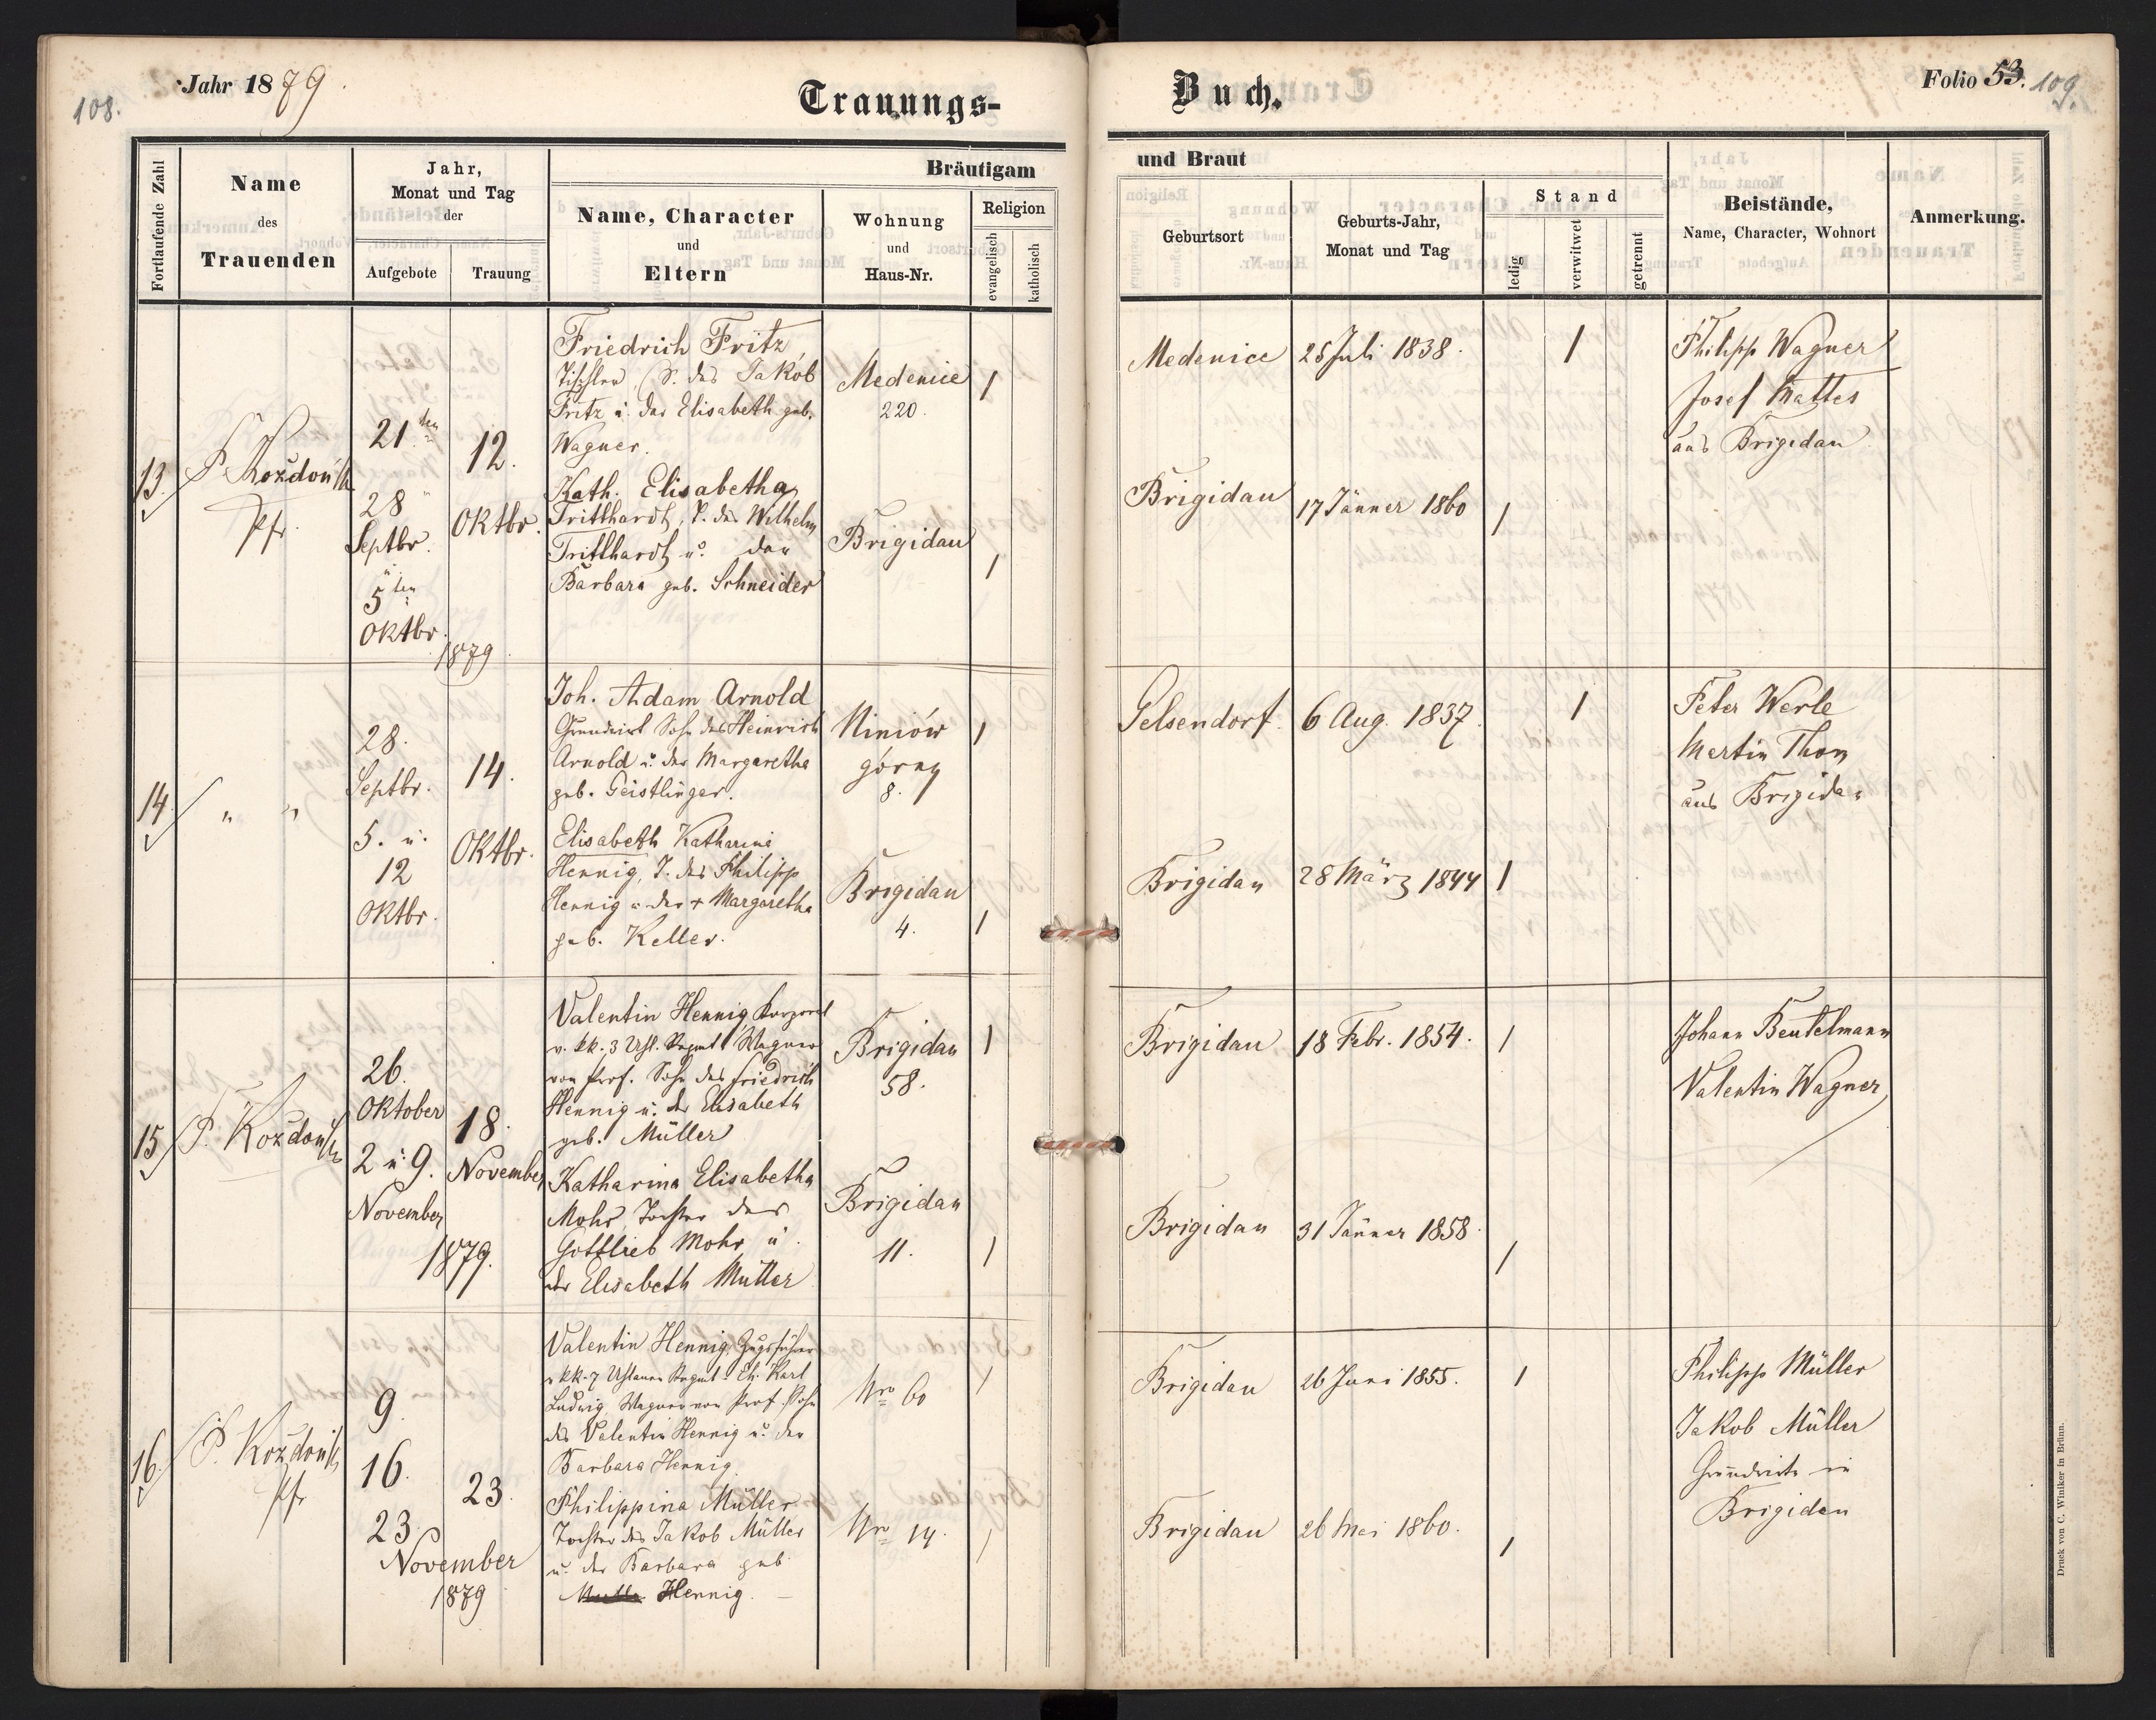 108.
Jahr 1879.
Trauungs-
Buch.
Folio 53. 109.
Fortlaufende Zahl
Name
des
Trauenden
Jahr,
Monat und Tag
der
Aufgebote
Trauung
Bräutigam
Name, Character
und
Eltern
Wohnung
und
Haus-Nr.
Religion
evangelisch
katholisch
und Braut
Geburtsort
Geburts-Jahr,
Monat und Tag
Stand
ledig
verwitwet
getrennt
Beistände,
Name, Character, Wohnort
Anmerkung.
13.
Pfr.
21ten
28
Septbr.
5ten
Oktbr.
1879
12.
Oktbr.
Friedrich Fritz,
Tischler, S. des Jakob
Fritz u. der Elisabeth geb.
Wagner.
Kath. Elisabetha
Tritthardt, T. des Wilhelm
Tritthardt u. der
Barbara geb. Schneider
Medenice
220.
Brigidau
Medenice
25 Juli 1838.
Brigidau
17 Jänner 1860
Philipp Wagner
Josef Mattes
aus Brigidau
14.
" "
28.
Septbr.
5. u.
12
Oktbr.
14.
Oktbr.
Joh. Adam Arnold
Grundwirt Sohn des Heinrich
Arnold u. der Margaretha
geb. Geistlinger.
Elisabeth Katharina
Hennig, T. des Philipp
Hennig u. der + Margaretha
geb. Keller.
Niniów
górny
8.
Brigidau
4.
Gelsendorf.
6 Aug. 1837.
Brigidau
28 März 1844
Peter Werle
Martin Thom
aus Brigidau
15
P. Koždoń
26.
Oktober
2 u. 9.
November
1879.
18.
November
Valentin Hennig, Korporal
v. kk. 3 Uhl. Regmt. Wagner
von Prof. Sohn des Friedrich
Hennig u. der Elisabeth
geb. Müller
Katharina Elisabetha
Mohr Tochter des
Gottlieb Mohr u.
der Elisabeth Müller
Brigidau
58.
Brigidau
11.
Brigidau
18 Febr. 1854.
Brigidau
31 Jänner 1858.
Johann Beutelmann
Valentin Wagner
16.
P. Koždoń
Pfr
9.
16.
23
November
1879
23.
Valentin Hennig, Zugsführer
v. kk. 7 Uhlanen Regmt. Eh. Karl
Ludwig, Wagner von Prof. Sohn
des Valentin Hennig u. der
Barbara Hennig.
Philippina Müller
Tochter des Jakob Müller
u. der Barbara geb.
Hennig.
Nro 60
Nro 14.
Brigidau
26 Juni 1855.
Brigidau
26 Mai 1860.
Philipp Müller
Jakob Müller
Grundwirte in
Brigidau
Druck von C. Winiker in Brünn.